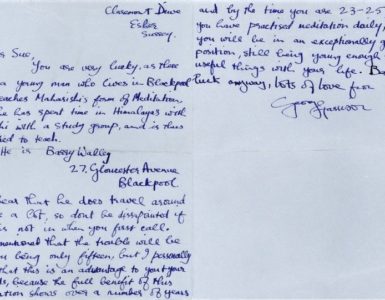 Claremont Drive
Esher
Surrey.
Sue,
You are very lucky, as there
a young man who lives in Blackpool
teaches Maharishi's form of Meditation.
he has spent time in Himalayas with
hi with a study group, and is thus
ied to teach.
He is Barry Walley
27, Gloucester Avenue
Blackpool.
hear that he does travel around
a lot, so dont be dissapointed if
is not in when you first call.
mentioned that the trouble will be
being only fifteen, but I personally
that this is an advantage to your
because the full benefit of this
tion shows over a number of years
and by the time you are 23-25
you have practised meditation daily,
you will be in an exceptionally
position, still being young enough
useful things with your life.
luck anyway, lots of love from
George Harrison